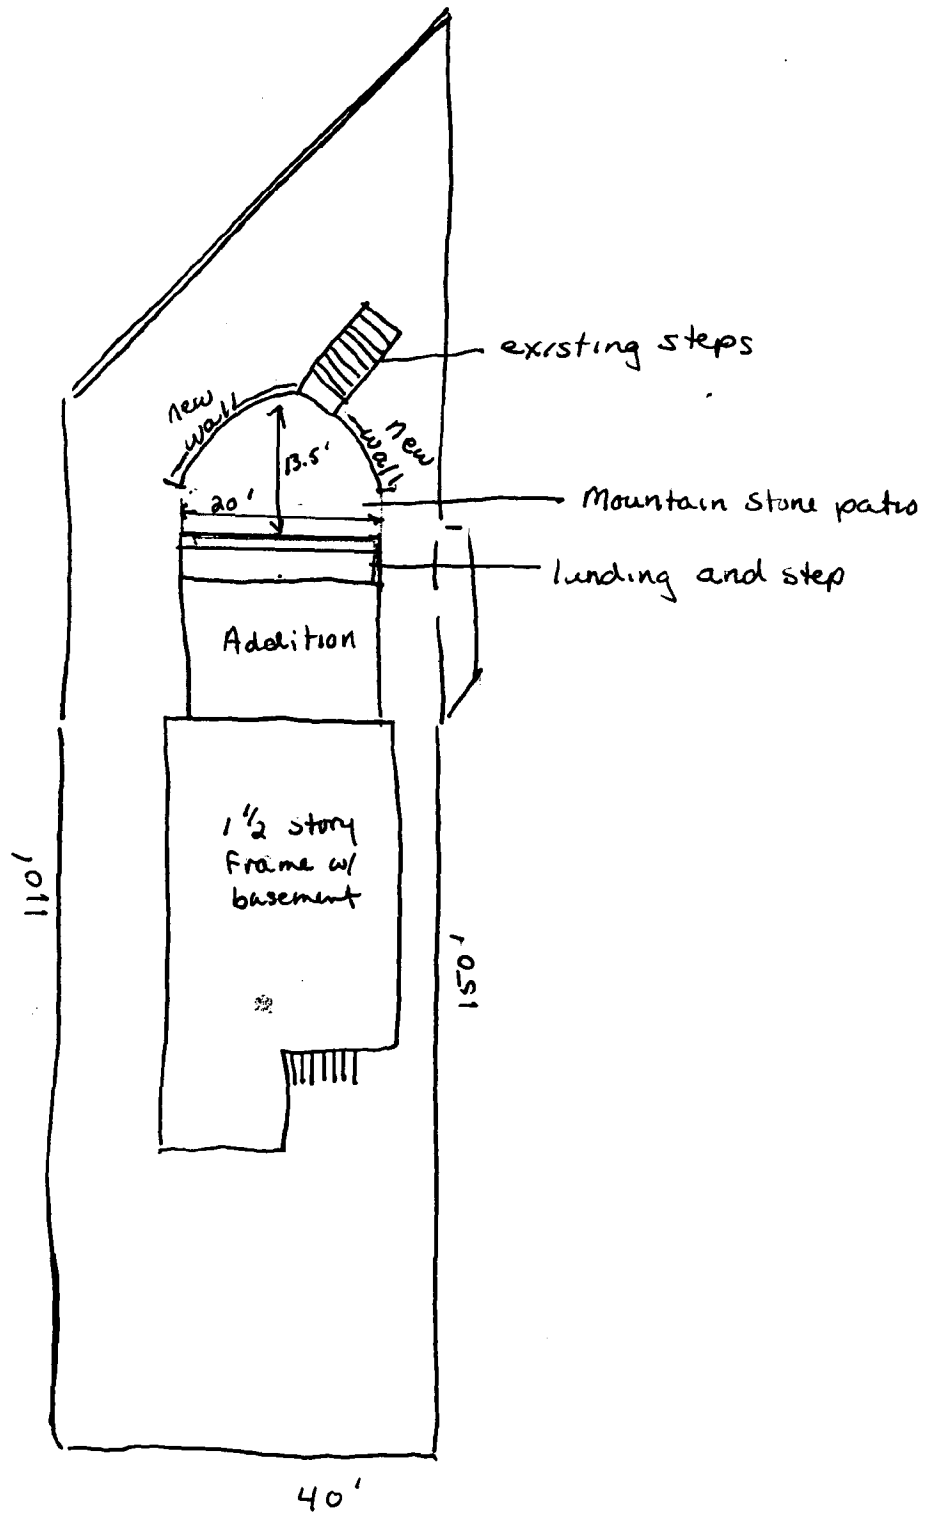 existing steps
new
wall
new
wall
13.5'
20'
Mountain stone patio
landing and step
Addition
1 1/2 story
Frame w/
basement
110'
150'
40'